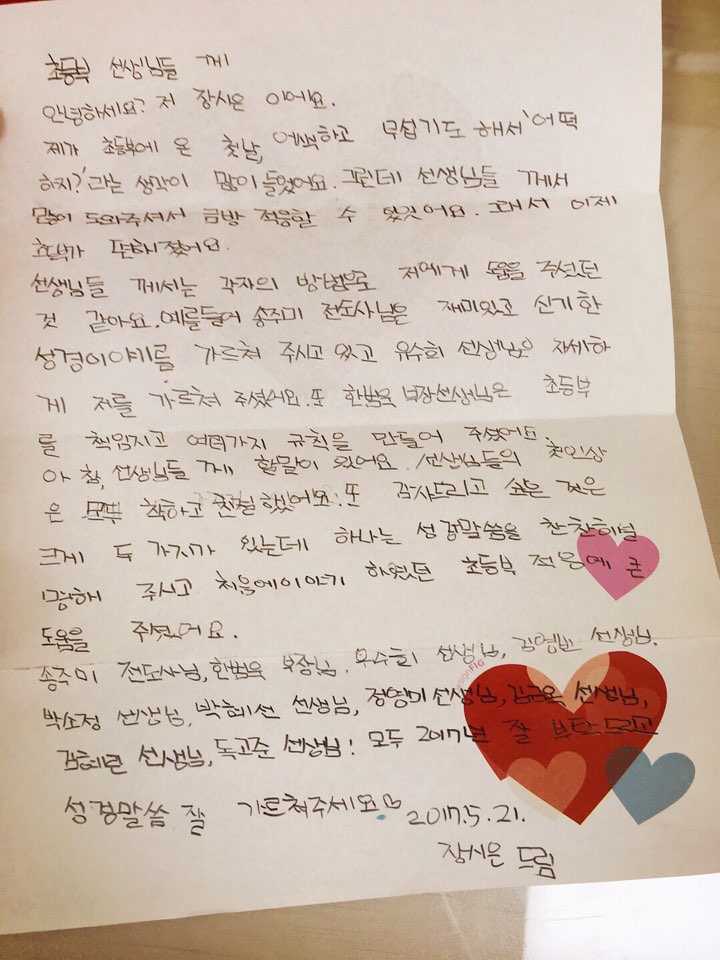 초등부 선생님들 께
안녕하세요? 저 장시은 이에요.
제가 초등부에 온 첫날, 어색하고 무섭기도 해서 '어떡
하지?' 라는 생각이 많이 들었어요. 그런데 선생님들 께서
많이 도와주셔서 금방 적응할 수 있었어요. 그래서 이제
초등부가 편해졌어요.
선생님들 께서는 각자의 방법으로 저에게 도움을 주셨던
것 같아요. 예를들어 송주미 전도사님은 재미있고 신기한
성경이야기를 가르쳐 주시고 있고 유수희 선생님은 자세하
게 저를 가르쳐 주셨어요. 또 한범욱 부장선생님은 초등부
를 책임지고 여러가지 규칙을 만들어 주셨어요.
아 참, 선생님들 께 할말이 있어요. 선생님들의 첫인상
은 모두 착하고 친절했어요! 또 감사드리고 싶은 것은
크게 두 가지가 있는데 하나는 성경말씀을 찬찬히 설
명해 주시고 처음에 이야기 하였던 초등부 적응에 큰
도움을 주셨어요.
송주미 전도사님, 한범욱 부장님, 유수희 선생님, 김영빈 선생님.
박소정 선생님, 박혜선 선생님, 정영미 선생님, 선생님,
김혜린 선생님, 독고준 선생님! 모두 2017년 잘 부탁드리고
성경말씀 잘 가르쳐주세요♡ 2017.5.21.
장시은 드림